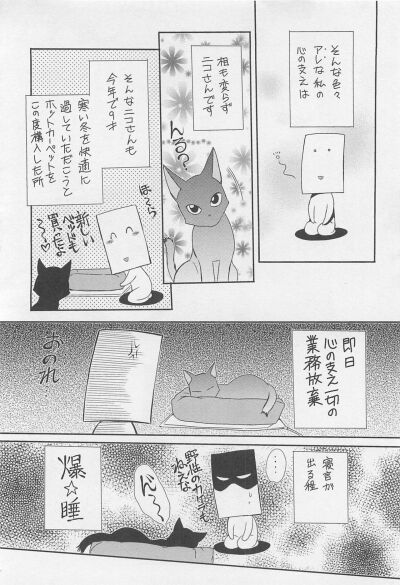 そんな色々
アレな私の
心の支えは
相も変らず
ニコさんです
んる?
そんなニコさんも
今年で9才
寒い冬を快適に
過していただこうと
ホットカーペットを
この度購入した所
ほ〜ら
新しい
ベッドも
買ったよ
〜♡
即日
心の支え一切の
業務放棄
おのれ
寝言が
出る程
・・・・
野性のカケラも
ねぇな
ん〜
爆☆睡